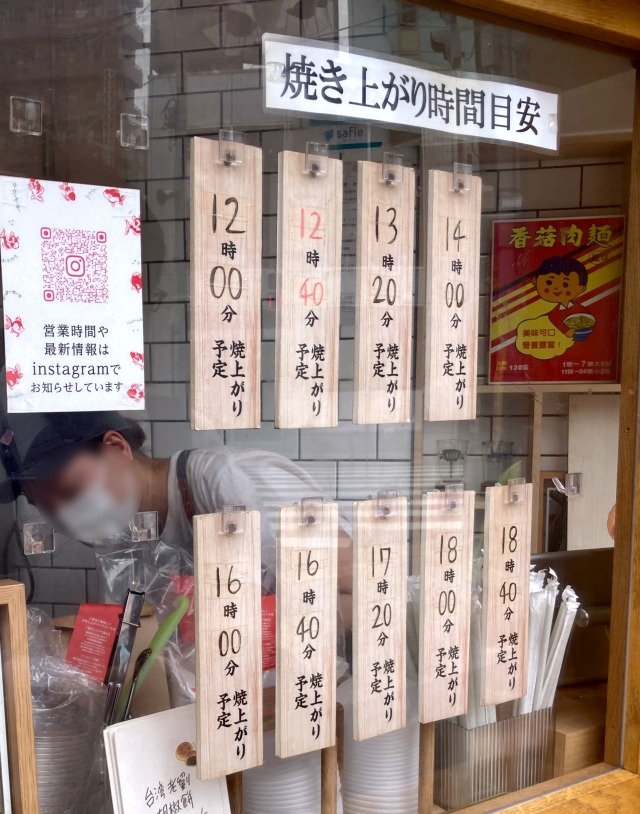 焼き上がり時間目安
safie
12時00分 焼上がり予定
12時40分 焼上がり予定
13時20分 焼上がり予定
14時00分 焼上がり予定
営業時間や
最新情報は
instagramで
お知らせしています
香菇肉麵
美味可口
營養豐富!
16時00分 焼上がり予定
16時40分 焼上がり予定
17時20分 焼上がり予定
18時00分 焼上がり予定
18時40分 焼上がり予定
台湾老劉
胡椒餅